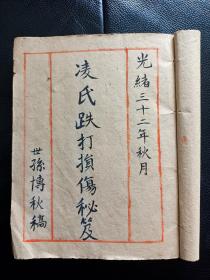 光緒三十二年秋月
凌氏跌打損傷秘笈
世孫博秋稿